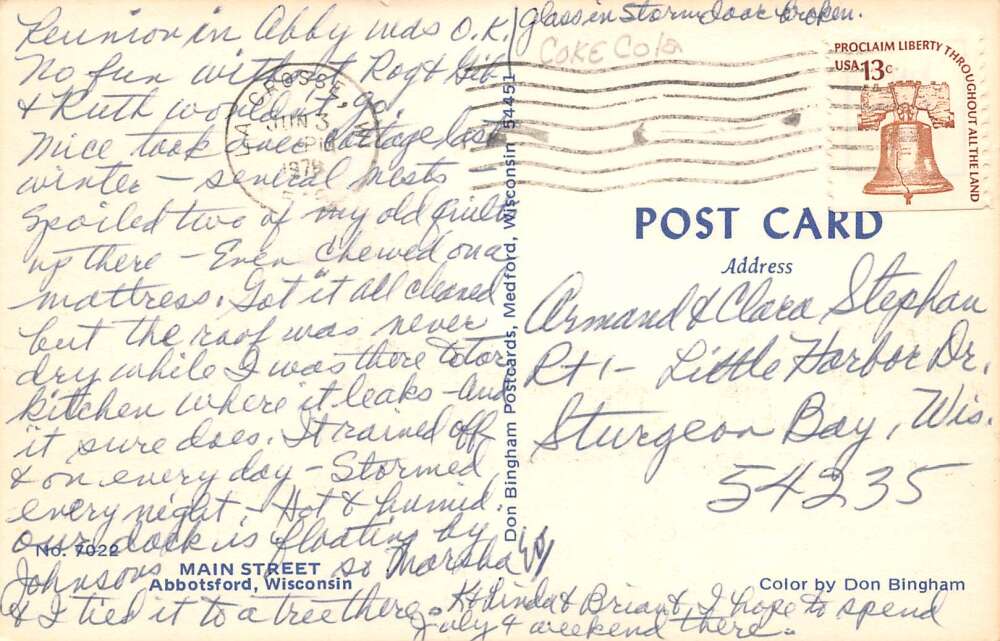 Reunion in Abby was O.K.
No fun without Rog & Gib
& Ruth wouldn't go.
Mice took over cottage last
winter – several nests –
Spoiled two of my old quilts
up there – Even chewed on a
mattress. Got it all cleaned
but the roof was never
dry while I was there to tar
kitchen where it leaks – And
it sure does. It rained off
& on every day – Stormed
every night, – Hot & humid.
Our dock is floating by
Johnsons so Marsha
& I tied it to a tree there.
K & Linda & Brian & I hope to spend
July 4 weekend there.
glass in Storm door broken.
COKE Cola
LA CROSSE
JUN 3
PM
PROCLAIM LIBERTY THROUGHOUT ALL THE LAND
USA 13c
POST CARD
Address
Armand & Clara Stephan
Rt 1 – Little Harbor Dr.
Sturgeon Bay, Wis.
54235
Don Bingham Postcards, Medford, Wisconsin 54451
No. 7022
MAIN STREET
Abbotsford, Wisconsin
Color by Don Bingham